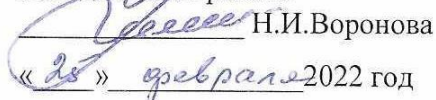 Н.И.Воронова
«25» февраля 2022 год